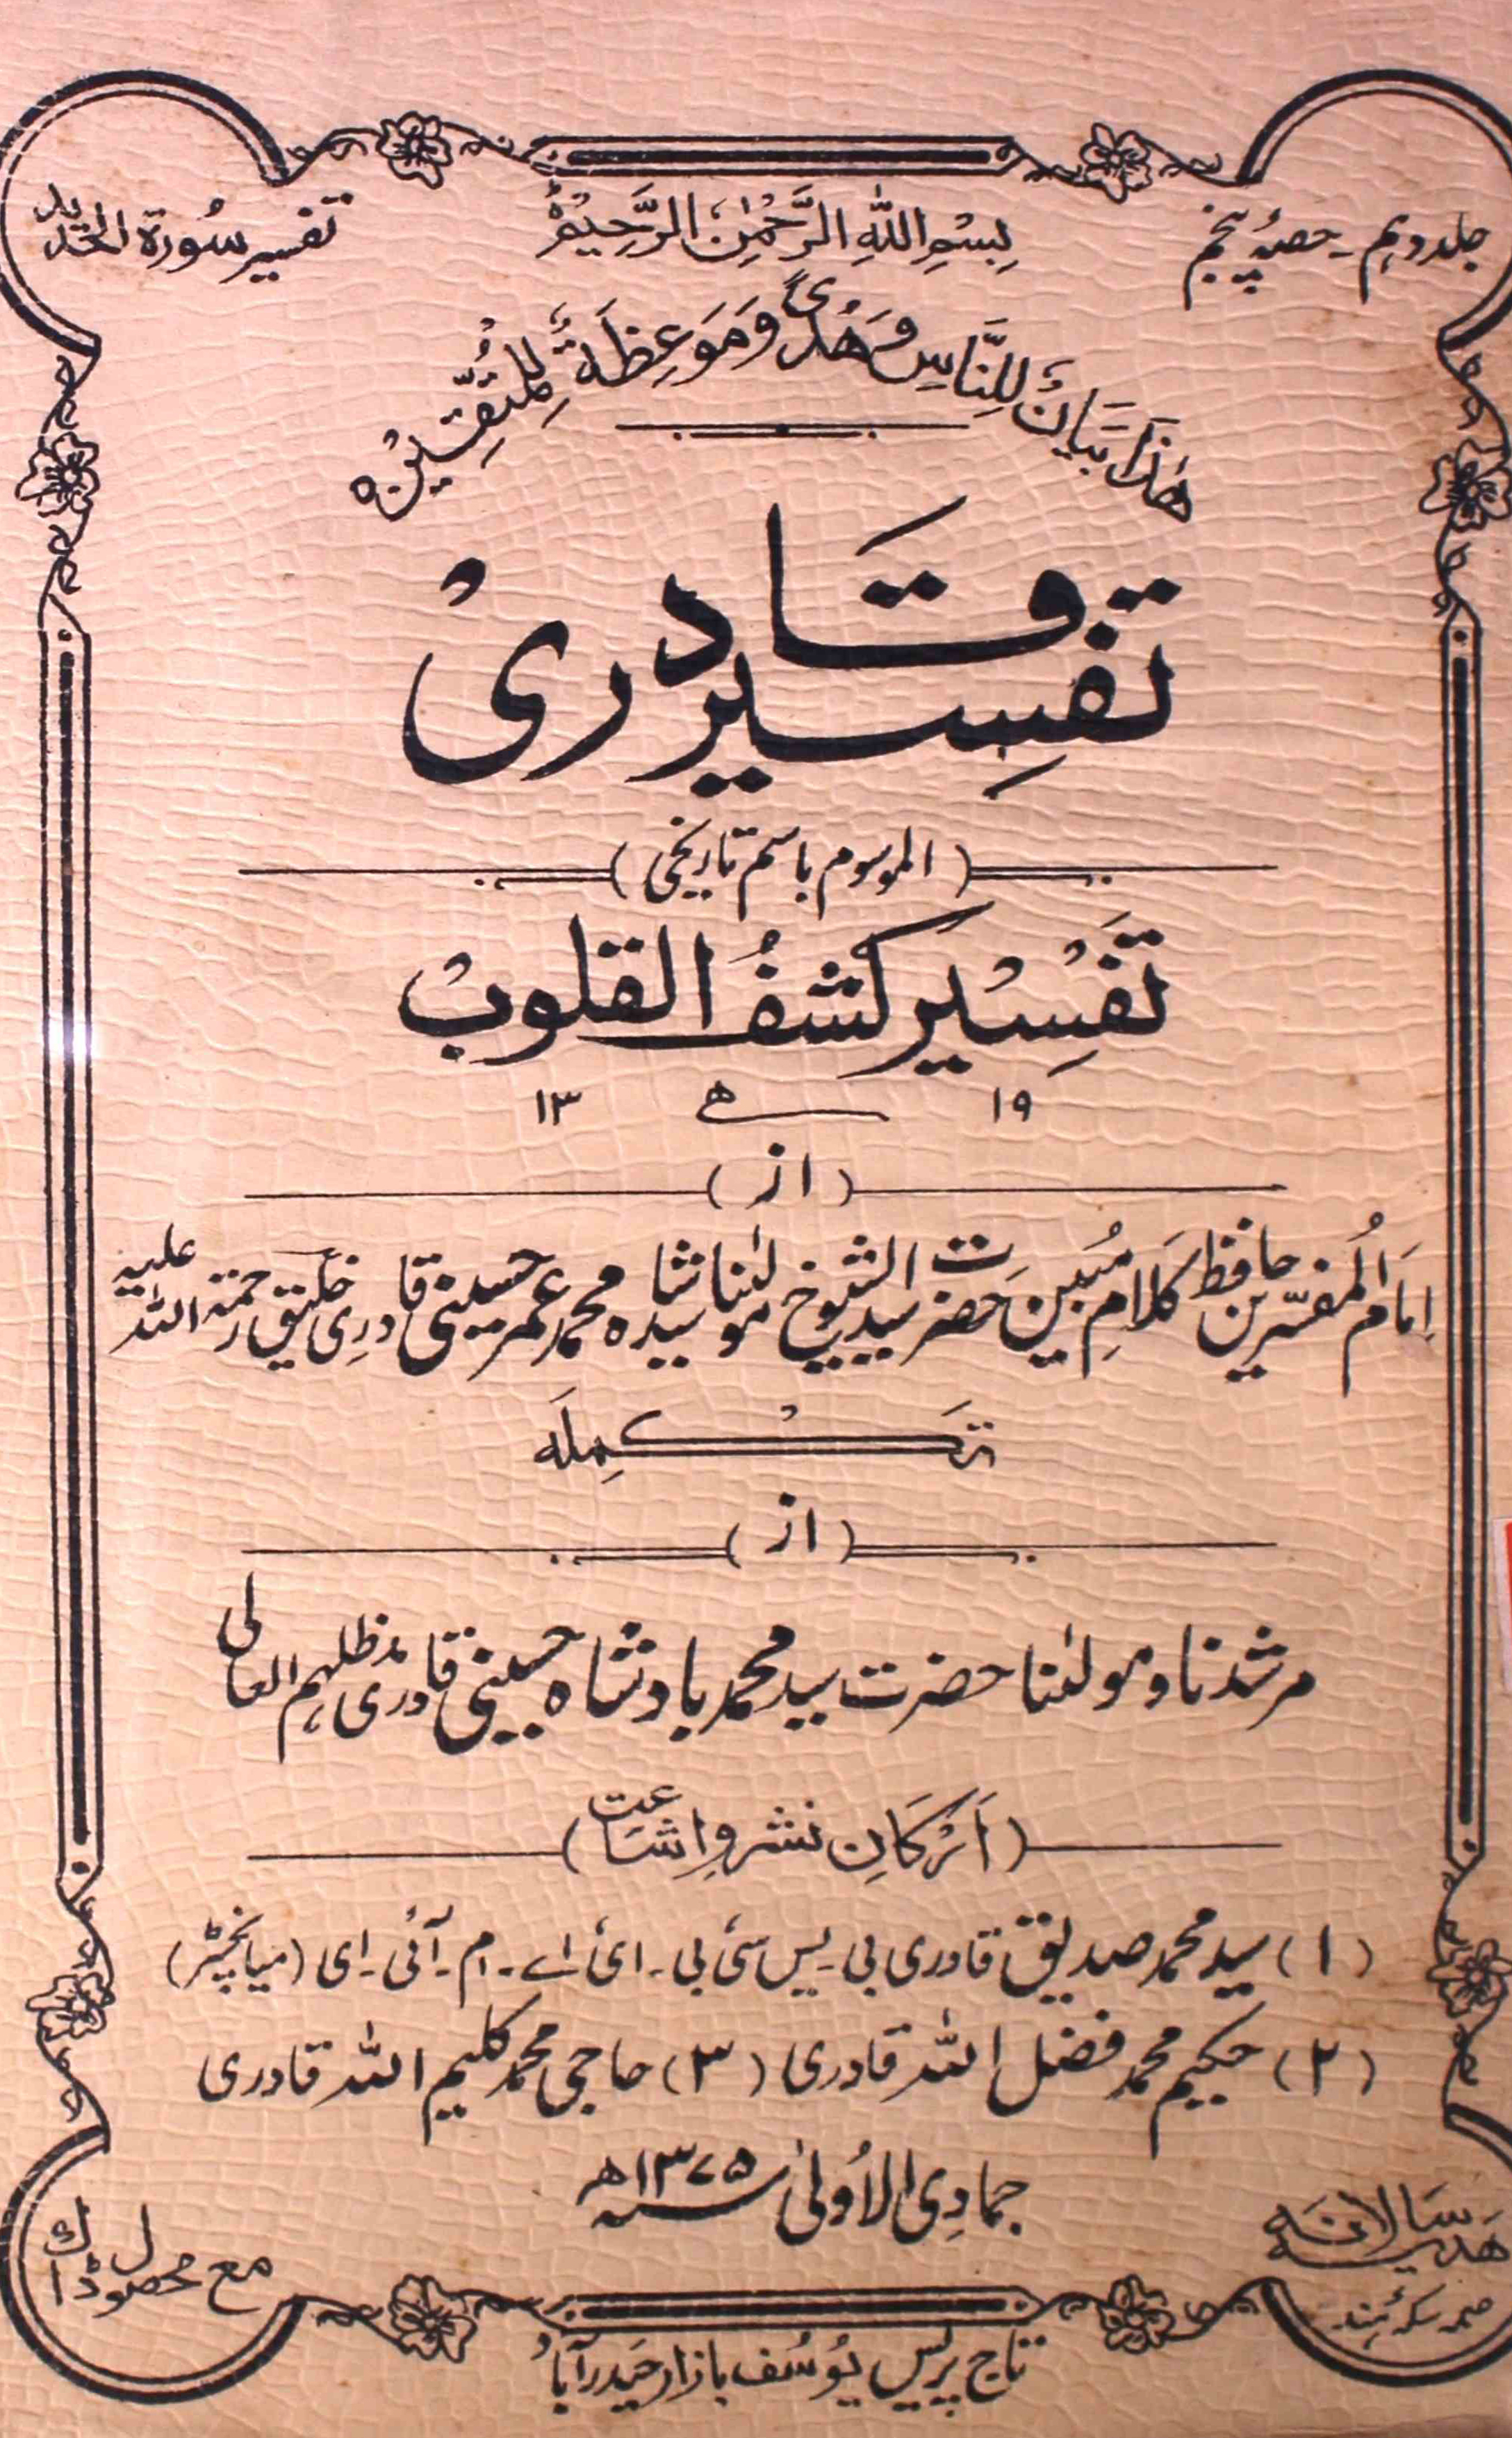 جلد دہم ۔ حصہ پنجم
بِسْمِ اللهِ الرَّحْمٰنِ الرَّحِيْمِ
تفسیر سُورۃ الحدید
هٰذَا بَيَانٌ لِلنَّاسِ وَهُدًى وَمَوْعِظَةٌ لِّلْمُتَّقِيْنَ ہ
تفسِیر قادری
( الموسوم باسم تاریخی )
تَفْسِیْر کشفُ القلوب
١٩ ھ ١٣
( از )
اِمَامُ المُفسّرین حافظ کلامِ مُبین حضرت سید الشیوخ مولٰنا سید شاہ محمد عمر حسینی قادری خلیق رحمۃ اللہ علیہ
تَکْمِلَہ
( از )
مرشدنا و مولٰنا حضرت سید محمد بادشاہ حسینی قادری مدظلہم العالی
( اَرْکَانِ نشر و اِشَاعت )
( ۱ ) سید محمد صدیق قادری بی ۔ یس سی بی ۔ ای اے ۔ ام ۔ آئی ۔ ای ( میانچسٹر )
( ۲ ) حکیم محمد فضل اللہ قادری ( ۳ ) حاجی محمد کلیم اللہ قادری
جمادِی الاُولیٰ سنہ ۱۳۷۵ھ
ھَدیہ سَالانہ
مع محصول ڈاک
تاج پریس یُوسُف بازار حَیدرآباد